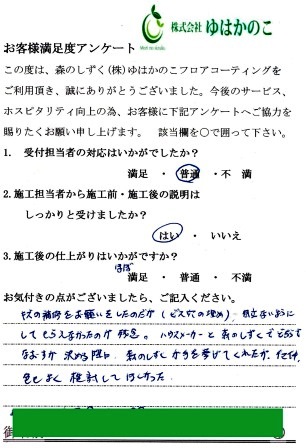 株式会社 ゆはかのこ
お客様満足度アンケート
この度は、森のしずく(株)ゆはかのこフロアコーティングを
ご利用頂き、誠にありがとうございました。今後のサービス、
ホスピタリティ向上の為、お客様に下記アンケートへご協力を
賜りたくお願い申し上げます。 該当欄を○で囲って下さい。
1. 受付担当者の対応はいかがでしたか?
満足 ・ 普通 ・ 不満
2.施工担当者から施工前・施工後の説明は
しっかりと受けましたか?
はい ・ いいえ
3.施工後の仕上がりはいかがですか?
ほぼ
満足 ・ 普通 ・ 不満
お気付きの点がございましたら、ご記入ください。
キズの補修をお願いをしたのだが(ビス穴の埋め)、目立ないように
してもらえなかったのが残念。ハウスメーカーと森のしずくでどちらで
なおすか決める際に、森のしずくが手を挙げてくれたが、
もよく検討してほしかった。